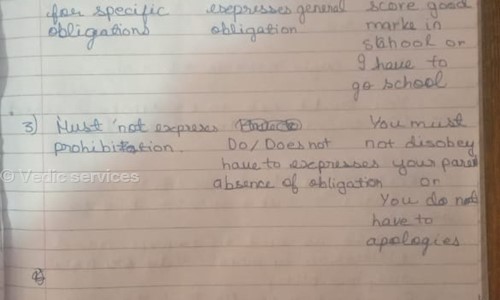 for specific expresses general score good
obligations obligation marks in
school or
I have to
go school
3) Must not express You must
prohibition. Do/Does not not disobey
have to expresses your paren
absence of obligation or
You do not
have to
apologies
© Vedic services